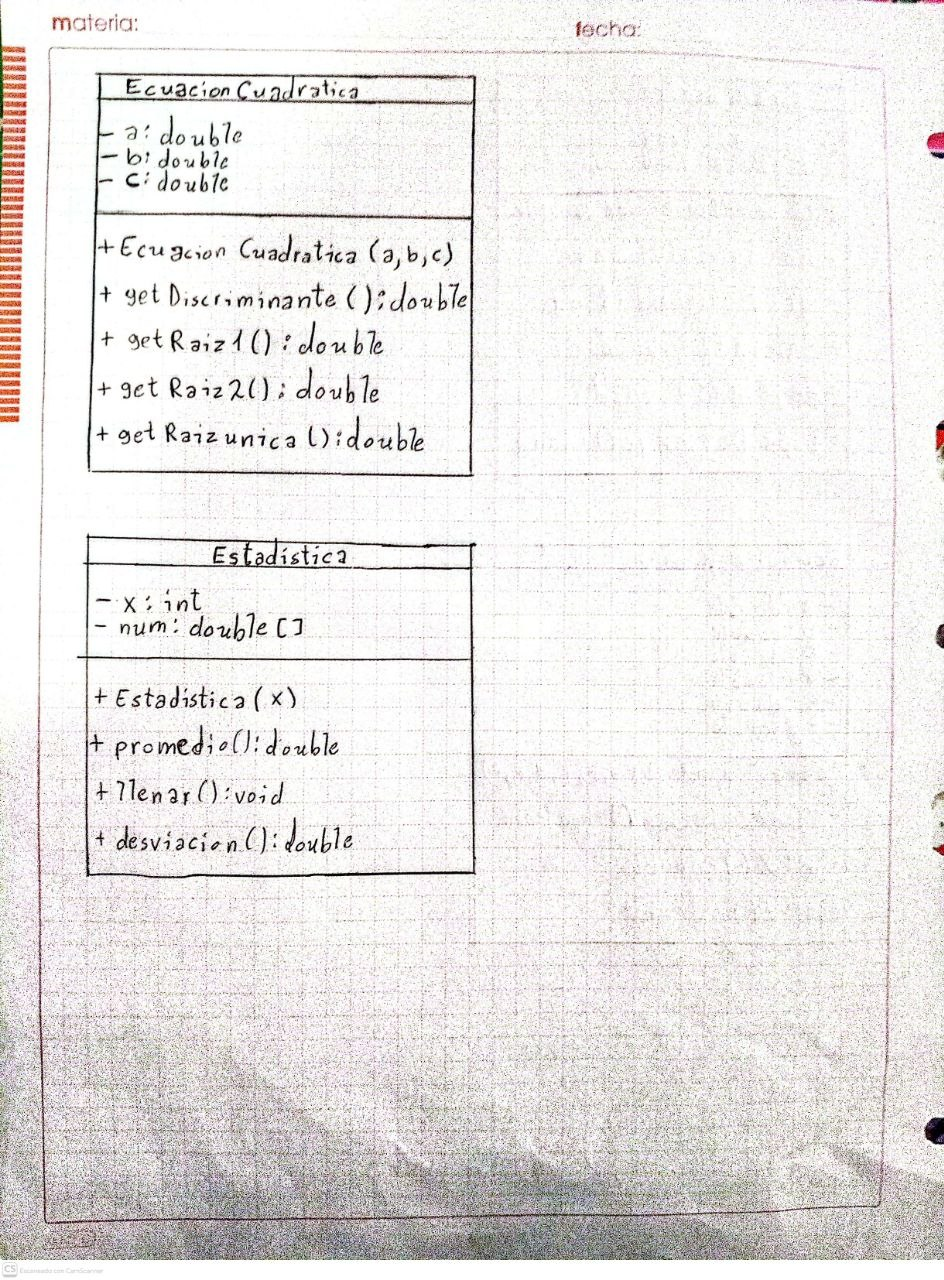 materia:
fecha:
Ecuacion Cuadratica
- a: double
- b: double
- c: double
+ Ecuacion Cuadratica (a,b,c)
+ get Discriminante (): double
+ get Raiz1(): double
+ get Raiz2(): double
+ get Raizunica (): double
Estadística
- x: int
- num: double []
+ Estadística (x)
+ promedio(): double
+ llenar(): void
+ desviacion(): double
CS Escaneado con CamScanner